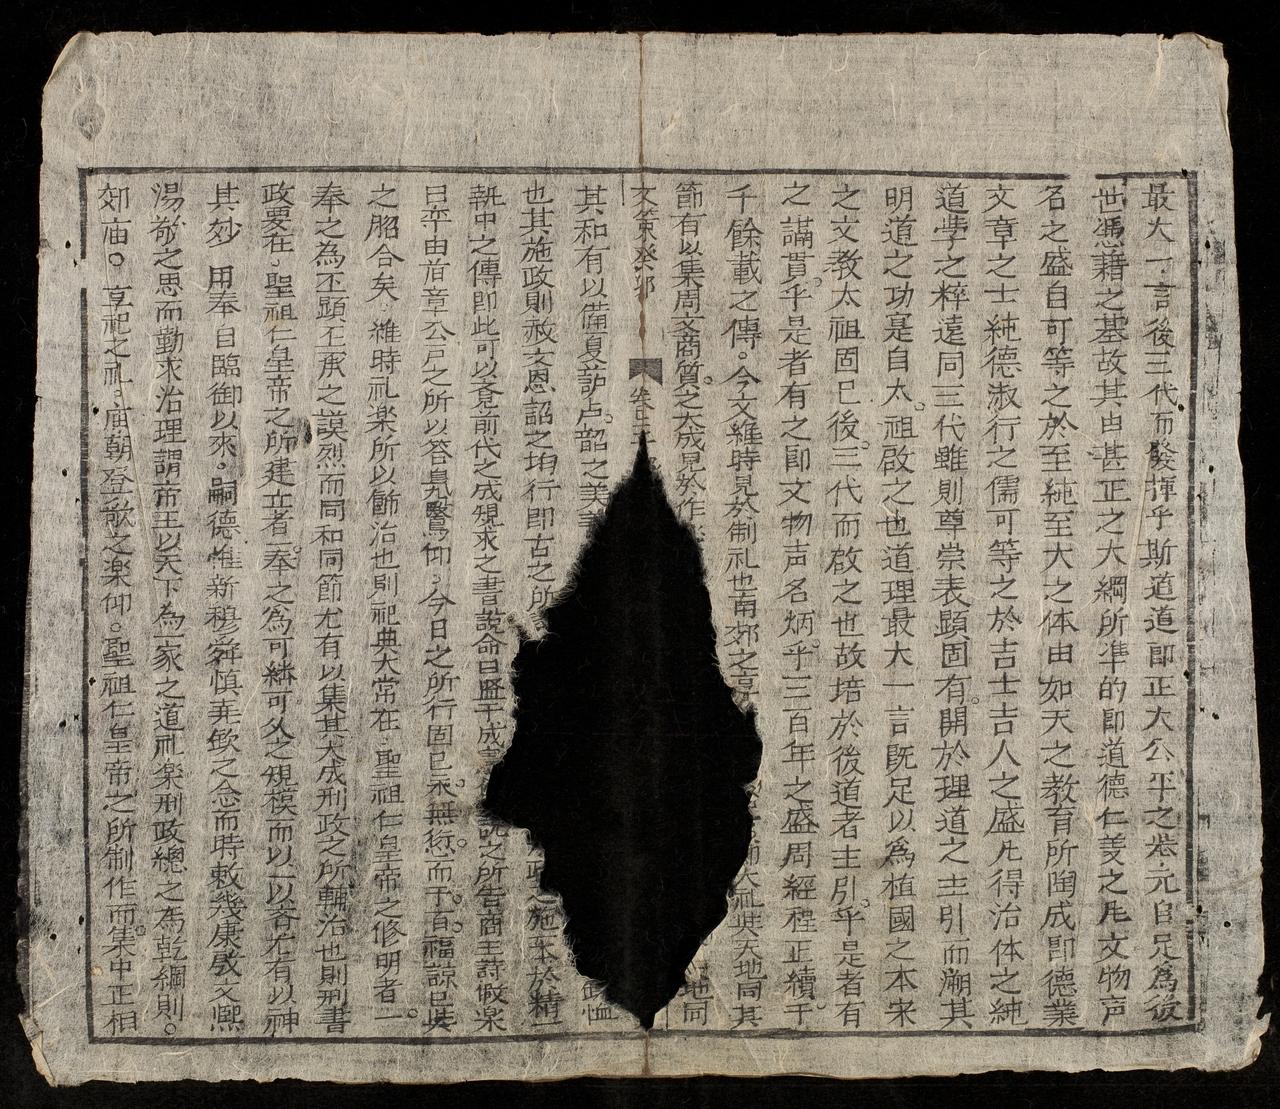 最大一言後三代而發揮乎斯道道即正大公平之卷元自足為後
世憑藉之基故其由甚正之大綱所準的即道德仁義之凡文物声
名之盛自可等之於至純至大之体由如天之教育所陶成即德業
文章之士純德淑行之儒可等之於吉士吉人之盛凡得治体之純
道學之粹遠同三代雖則尊崇表顕固有開於理道之主引而溯其
明道之功是自太祖啟之也道理最大一言既足以為植國之本来
之文教太祖固已後三代而啟之也故培於後道者主引乎是者有
之謁貫乎是者有之即文物声名炳乎三百年之盛周經程正續千
千餘載之傳今文維時見於制礼也南郊之享 節大祀典天地同其
節有以集周文商質之大成見於作 地同
文策癸卯 卷二
其和有以備夏 韶之美 政恤
也其施政則赦文恩詔之均行即古之所 政之施本於精一
執中之傳即此可以見前代之成規求之書說命曰監于成 說之所告商王詩假楽
曰率由旧章公尸之所以答鳧鷖仰今日之所行固已永無愆而干百福諒已與
之脗合矣維時礼楽所以飾治也則祀典大常在聖祖仁皇帝之修明者一
奉之為丕顕丕承之謨烈而同和同節尤有以集其大成刑政之所輔治也則刑書
政要在聖祖仁皇帝之所建立者一奉之為可継可久之規模而以 有以神
其妙用奉自臨御以來嗣德惟新穆穆慎乗欽之念而時敕幾康啟文熙
湯敬之思而勤求治理謂帝王以天下為一家之道礼楽刑政總之為乾綱則
郊庙享祀之礼庙朝登歌之楽仰聖祖仁皇帝之所制作而集中正相